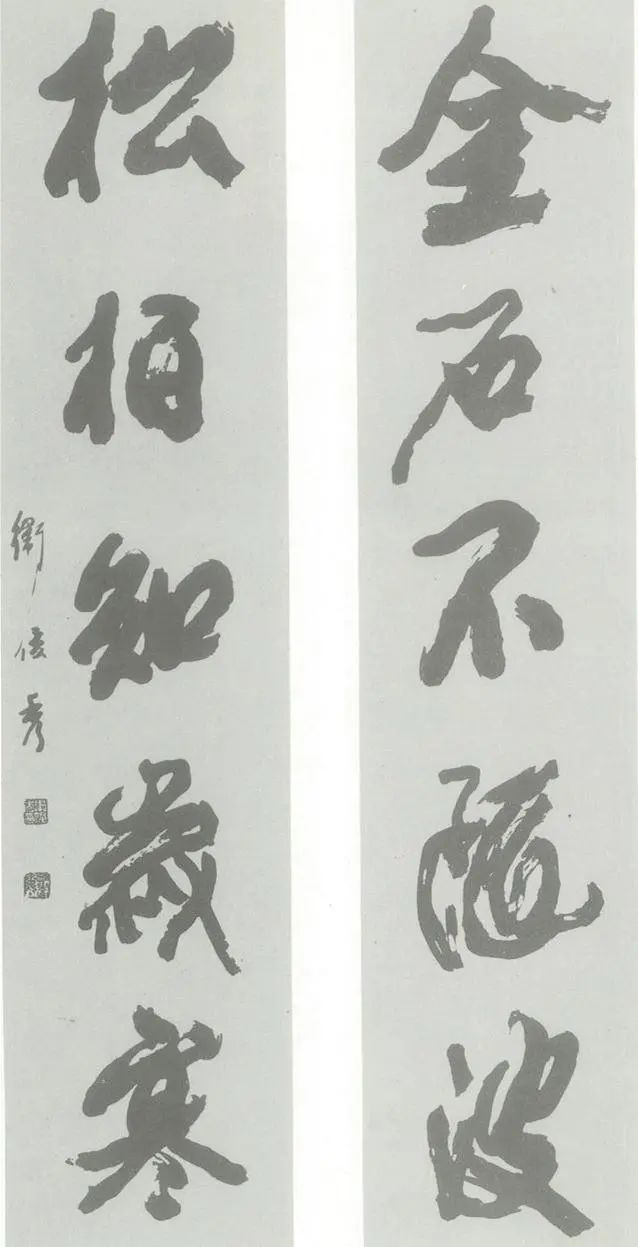 金石不随波
松柏知歲寒
衛俊秀